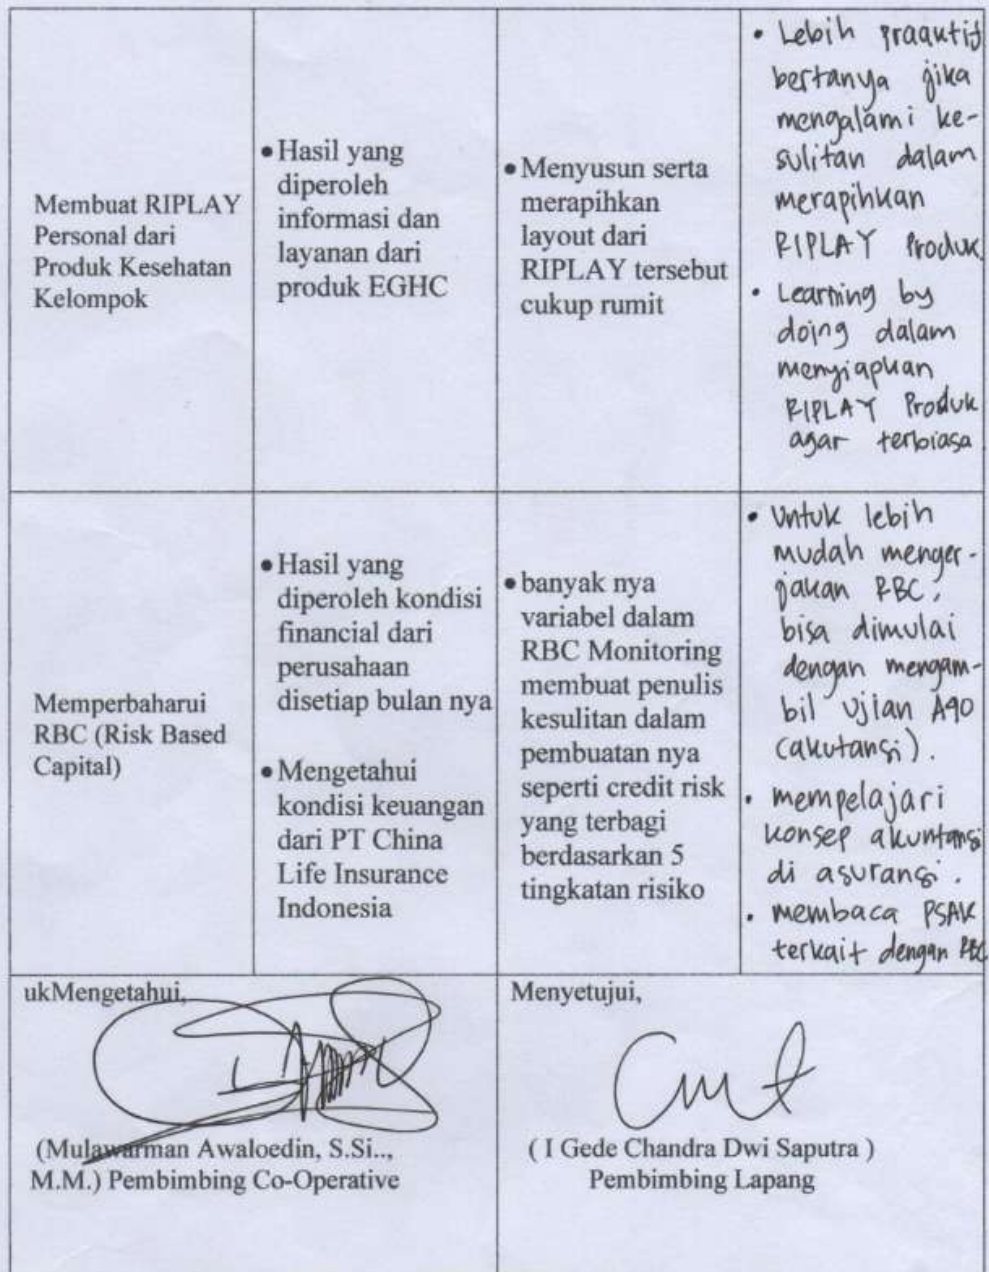 Membuat RIPLAY
Personal dari
Produk Kesehatan
Kelompok
• Hasil yang
diperoleh
informasi dan
layanan dari
produk EGHC
• Menyusun serta
merapihkan
layout dari
RIPLAY tersebut
cukup rumit
• Lebih praaktif
bertanya jika
mengalami ke-
sulitan dalam
merapihkan
RIPLAY Produk
• Learning by
doing dalam
menyiapkan
RIPLAY Produk
agar terbiasa
Memperbaharui
RBC (Risk Based
Capital)
• Hasil yang
diperoleh kondisi
financial dari
perusahaan
disetiap bulan nya
• Mengetahui
kondisi keuangan
dari PT China
Life Insurance
Indonesia
• banyak nya
variabel dalam
RBC Monitoring
membuat penulis
kesulitan dalam
pembuatan nya
seperti credit risk
yang terbagi
berdasarkan 5
tingkatan risiko
• Untuk lebih
mudah menger-
jakan RBC,
bisa dimulai
dengan mengam-
bil ujian A90
(akutansi).
• mempelajari
konsep akuntansi
di asuransi.
• membaca PSAK
terkait dengan RBC
ukMengetahui,
(Mulawarman Awaloedin, S.Si..,
M.M.) Pembimbing Co-Operative
Menyetujui,
( I Gede Chandra Dwi Saputra )
Pembimbing Lapang